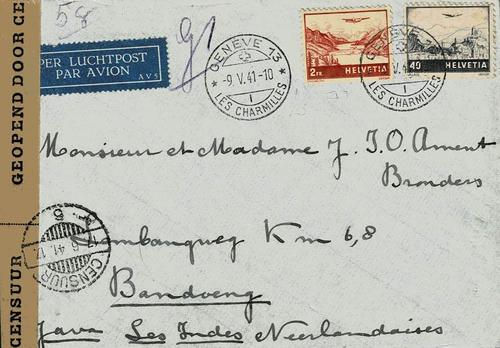 58
g1
PER LUCHTPOST
PAR AVION
AVS
GENÈVE 13
-9.V.41-10
LES CHARMILLES
2 FR.
HELVETIA
40
HELVETIA
GENÈVE
LES CHARMILLES
GEOPEND DOOR CE
CENSUUR
Monsieur et Madame J. I.O. Ament
Bronders
Lembangweg Km 6,8
Bandoeng
Java Les Indes Neerlandaises
CENSUUR
6.41.17
6